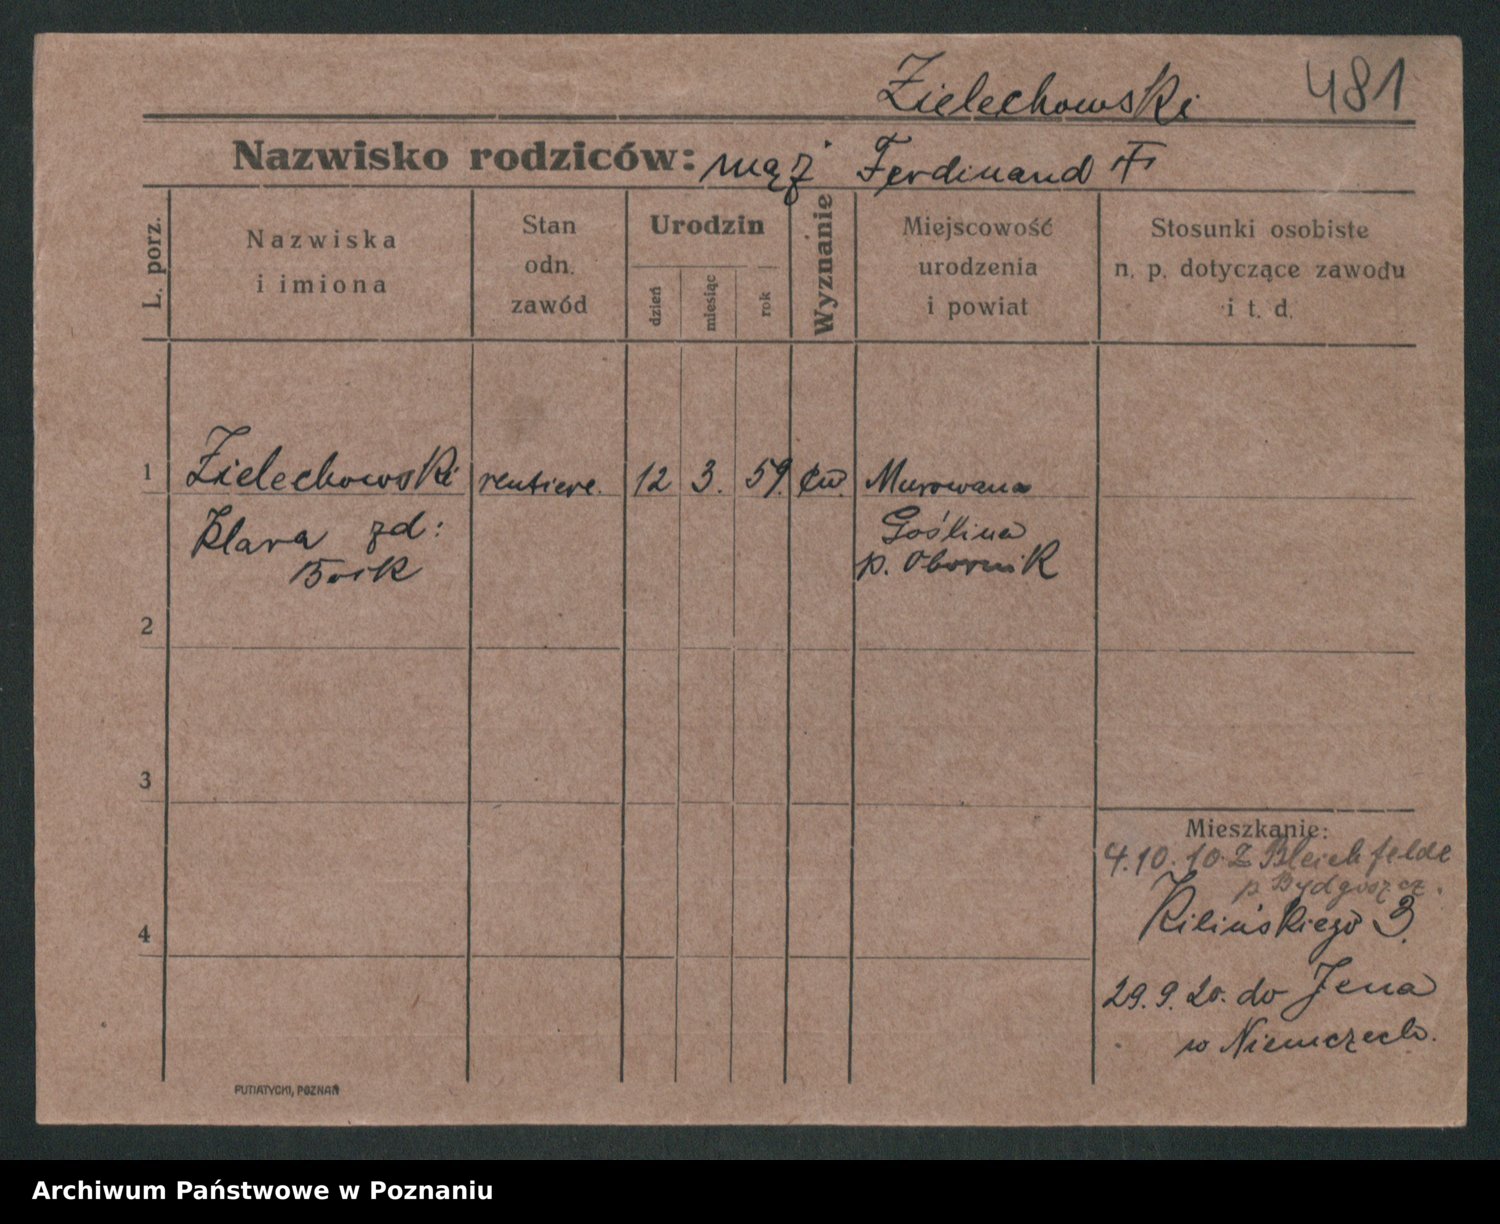 Zielechowski 481
Nazwisko rodziców: mąż Ferdinand
L. porz.
Nazwiska
i imiona
Stan
odn.
zawód
Urodzin
dzień
miesiąc
rok
Wyznanie
Miejscowość
urodzenia
i powiat
Stosunki osobiste
n. p. dotyczące zawodu
i t. d.
1 Zielechowski rentiere. 12 3. 59. ew. Murowana
Klara zd: Goślina
p. Obornik
2
3
Mieszkanie:
4.10.10. Z Bleichfelde
p. Bydgoszcz.
4 Kilińskiego 3.
29.9.20. do Jena
w Niemczech.
PUTIATYCKI, POZNAŃ
Archiwum Państwowe w Poznaniu